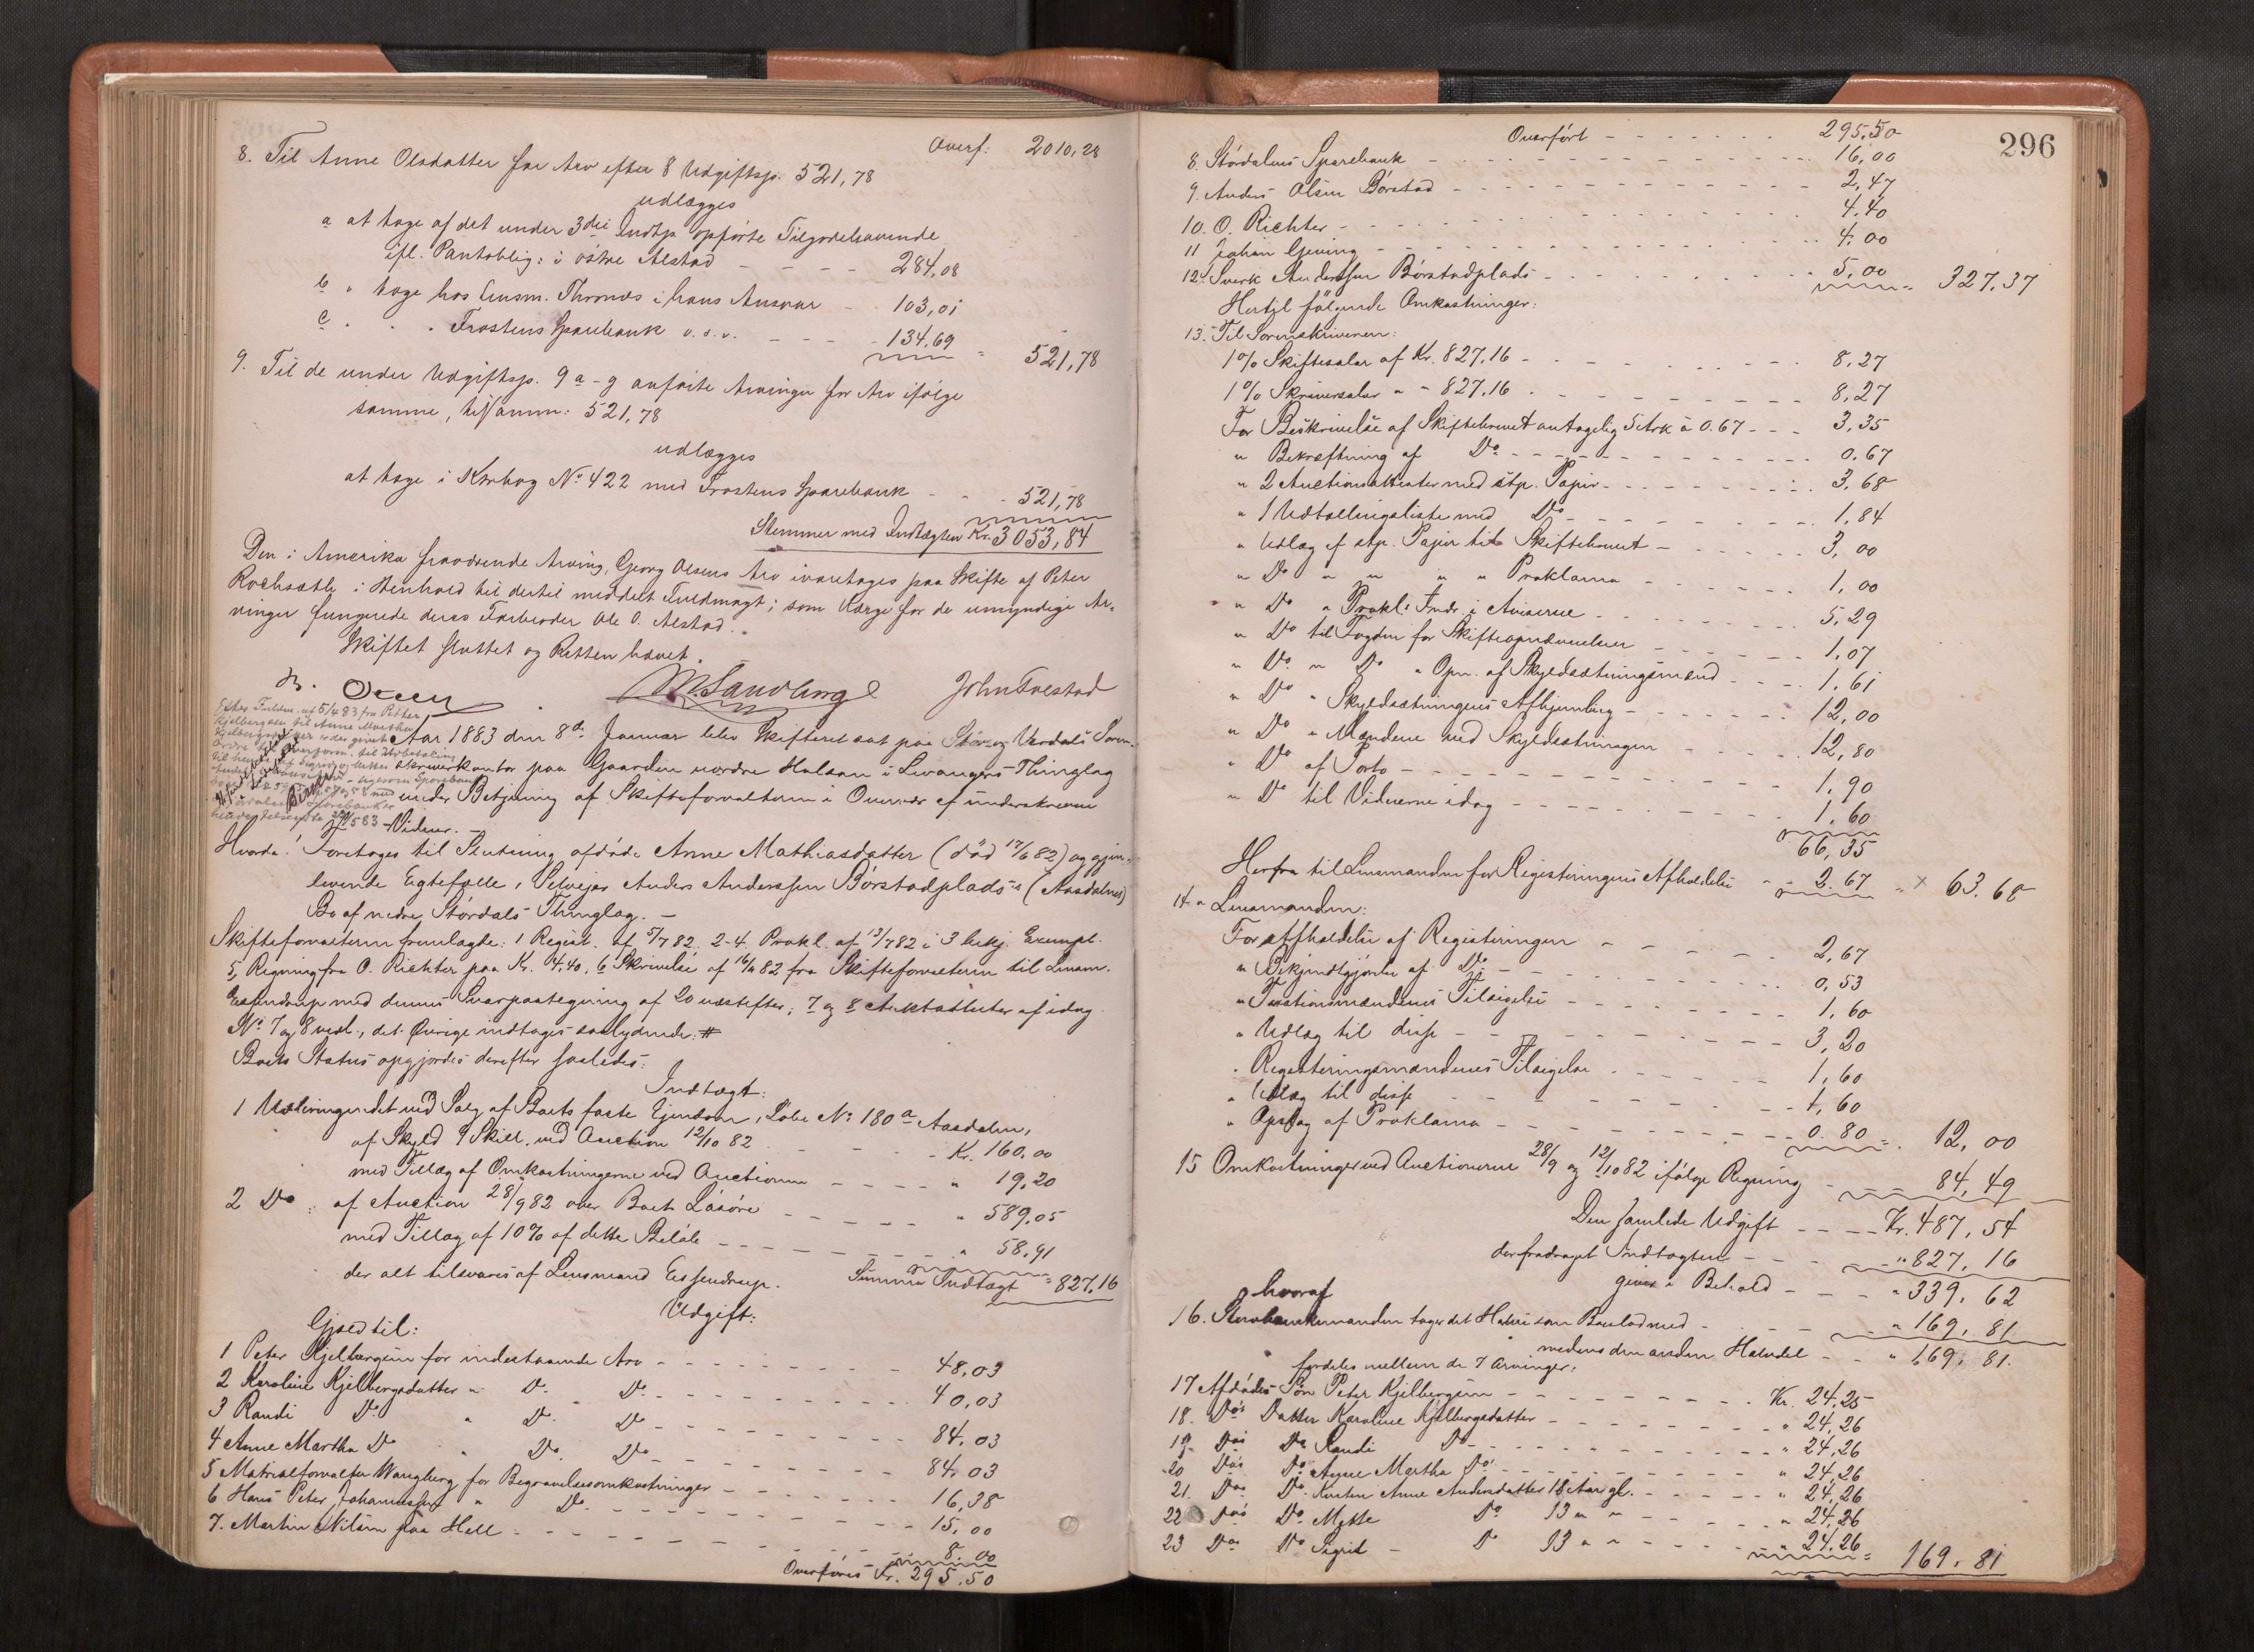 Overf: 2010,28
8. Til Anne Olsdatter for Arv efter 8 Udgiftsp. 521,78
udlægges
a at tage af det under 3die Indtp opførte Tilgodehavende
ifl. Pantoblig: i østre Alstad - - - - 284,08
b " tage hos Lensm. Thrones i hans Ansvar - - 103,01
c " " " Frostens Sparebank o. s. v. - - - - 134,69 = 521,78
9. Til de under Udgiftsp. 9 a-g anførte Arvinger for Arv ifølge
samme, tilsamm: 521,78
udlægges
at tage i Ktrbog No 422 med Frostens Sparebank - - - 521,78
Stemmer med Indtægten Kr. 3053,84
Den i Amerika fraværende Arving, Georg Olsens Arv ivaretages paa Skifte af Peter
i Henhold til dertil meddelt Fuldmagt; som Værge for de umyndige Ar-
vinger fungerede deres Farbroder Ole O. Alstad.
Skiftet sluttet og Retten hævet.
M. Sandborg John Trestad
Aar 1883 den 8de Januar blev Skifteret sat paa Stør- og Værdals Soren-
skriverkontor paa Gaarden nordre Halsan i Levangers Thinglag
under Betjening af Skifteforvalteren i Overvær af underskrevne
Vidner. -
Hvorda: Foretoges til Slutning afdøde Anne Mathiasdatter (død 17/6 82) og gjen-
levende Egtefælle, Selvejer Anders Anderssen Børstadplads's (Aasdalens)
Bo af nedre Størdals Thinglag. -
Skifteforvalteren fremlagde: 1 Regist. af 5/7 82. 2-4. Prokl. af 13/7 82 i 3 bekj. Exempl.
5, Regning fra O. Richter paa Kr. 4,40, 6 Skrivelse af 16/11 82 fra Skifteforvalteren til Lensm.
Essendrup med dennes Svarpaategning af 20 næstefter, 7 og 8 Auktattester af idag
No 7 og 8 vedl., det Øvrige indtages saalydende: #
Boets Status opgjordes derefter saaledes:
Indtægt:
1 Udbringendet ved Salg af Boets faste Ejendom, Løbe No 180 a Aasdalen,
af Skyld 9 Skill. ved Auction 12/10 82 - - - - - Kr. 160,00
med Tillæg af Omkostningerne ved Auctionen - - - - " 19,20
2 Do : af Auction 28/9 82 over Boets Løsøre - - - - - " 589,05
med Tillæg af 10% af dette Beløb - - - - - - - - " 58,91
der alt tilsvares af Lensmand Essendrup. Summa Indtægt = 827,16
Udgift:
Gjæld til:
1 Peter Kjelbergsen for indestaaende Arv - - - - - - - - - 48,03
2 Karoline Kjelbergsdatter " Do Do - - - - - - - - 40,03
3 Randi Do " Do Do - - - - - - - - 84,03
4 Anne Martha Do " Do Do - - - - - - - - 84,03
5 Materialforvalter Wangberg for Begravelsesomkostninger - - - - - - 16,38
6 Hans Peter Johannessen " Do - - - - - - - - 15,00
7. Martin Nilsen paa Hell - - - - - - - - - 8,00
Overføres Kr. 295,50
296
Overført - - - - - - - 295,50
8. Størdalens Sparebank - - - - - - - - - 16,00
9. Anders Olsen Børstad - - - - - - - - - 2,47
10. O. Richter - - - - - - - - - 4,40
11 Johan Gjeving - - - - - - - - - 4,00
12. Sverk Anderssen Børstadplads - - - - - - - 5,00 = 327,37
Hertil følgende Omkostninger:
13. Til Sorenskriveren:
1% Skiftesalær af Kr. 827,16 - - - - - - - 8,27
1% Skriversalær " " 827,16 - - - - - - - 8,27
For Beskrivelse af Skiftebrevet antagelig 5 Ark à 0.67 - - - 3,35
" Bekræftning af Do - - - - - - - - - 0,67
" 2 Auctionsattester med stp. Papir - - - - - - - 3,68
" 1 Udtællingsliste med Do - - - - - - - 1,84
" Udlæg af stp. Papir til Skiftebrevet - - - - - - 3,00
" Do " " " " Proklama - - - - - - 1,00
" Do " Prokl: Indr. i Aviserne - - - - - - 5,29
" Do til Fogden for Skifteopnævnelsen - - - - - - 1,07
" Do " Do " Opn. af Skyldsætningsmænd - - - - 1,61
" Do " Skyldsætningens Afhjemling - - - - - - 12,00
" Do " Mændene ved Skyldsætningen - - - - - 12,80
" Do af Porto - - - - - - - - - 1,90
" Do til Vidnerne idag - - - - - - - 1,60
66,35
Herfra til Lensmanden for Registreringens Afholdelse - - 2.67 " × 63.68
14 " Lensmanden:
For Afholdelse af Registeringen - - - - - - 2,67
" Bekjendtgjørelse af Do - - - - - - - 0,53
" Taxationsmændenes Tilsigelse - - - - - - 1,60
" Udlæg til disse - - - - - - - 3,20
" Registeringsmændenes Tilsigelse - - - - - - 1,60
" Udlæg til disse - - - - - - - 1,60
" Opslag af Proklama - - - - - - - 0.80 = 12,00
15 Omkostninger ved Auctionerne 28/9 og 12/10 82 ifølge Regning - - - 84,49
Den samlede Udgift - - - - Kr. 487,54
der fradraget Indtægten - - - " 827,16
giver i Behold - - - " 339,62
hvoraf
16. Stervboenkemanden tager det Halve som Boeslod med - - - " 169,81
medens den anden Halvdel - - " 169,81.
fordeles mellem de 7 Arvinger:
17 Afdødes Søn Peter Kjelbergsen - - - - - - - Kr. 24,25
18. Do's Datter Karoline Kjelbergsdatter - - - - - - " 24,26
19. Do's Do Randi Do - - - - - - " 24,26
20 Do's Do Anne Martha Do - - - - - - " 24,26
21. Do's Do Anne Andersdatter 18 Aar gl. - - - - - " 24,26
22 Do's Do Mette Do 13 " " - - - - - " 24,26
23 Do's Do Sigrid - Do 13 " " - - - - - " 24,26 = 169,81